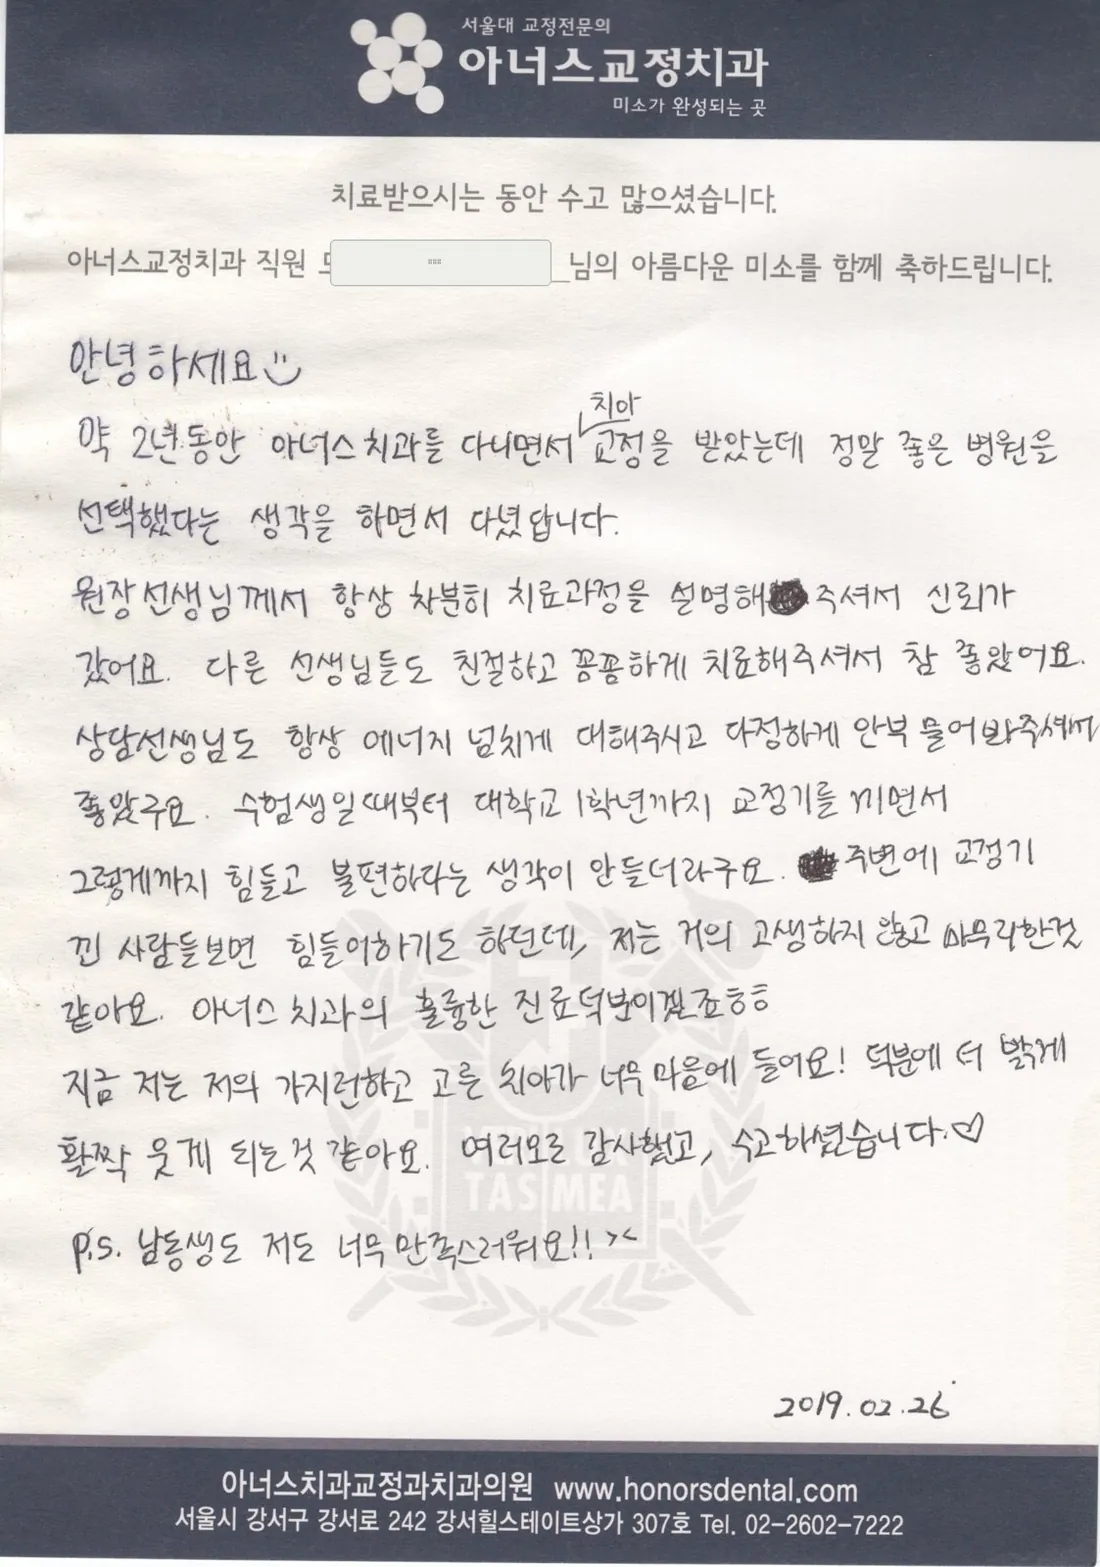 서울대 교정전문의
아너스교정치과
미소가 완성되는 곳
치료받으시는 동안 수고 많으셨습니다.
아너스교정치과 직원 님의 아름다운 미소를 함께 축하드립니다.
안녕하세요
치아
약 2년동안 아너스치과를 다니면서 교정을 받았는데 정말 좋은 병원을
선택했다는 생각을 하면서 다녔답니다.
원장선생님께서 항상 차분히 치료과정을 설명해 주셔서 신뢰가
갔어요. 다른 선생님들도 친절하고 꼼꼼하게 치료해주셔서 참 좋았어요.
상담선생님도 항상 에너지 넘치게 대해주시고 다정하게 안부 물어봐주셔서
좋았구요. 수험생일때부터 대학교 1학년까지 교정기를 끼면서
그렇게까지 힘들고 불편하다는 생각이 안들더라구요. 주변에 교정기
낀 사람들보면 힘들어하기도 하던데, 저는 거의 고생하지 않고 마무리한것
같아요. 아너스치과의 훌륭한 진료덕분이겠죠ㅎㅎ
지금 저는 저의 가지런하고 고른 치아가 너무 마음에 들어요! 덕분에 더 밝게
활짝 웃게 되는것 같아요. 여러모로 감사했고, 수고하셨습니다.♡
P.S. 남동생도 저도 너무 만족스러워요!! ><
TAS MEA
2019.02.26
아너스치과교정과치과의원 www.honorsdental.com
서울시 강서구 강서로 242 강서힐스테이트상가 307호 Tel. 02-2602-7222